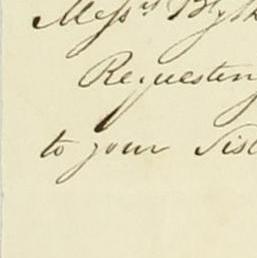 Messrs Bly
Requestin
to your Sis